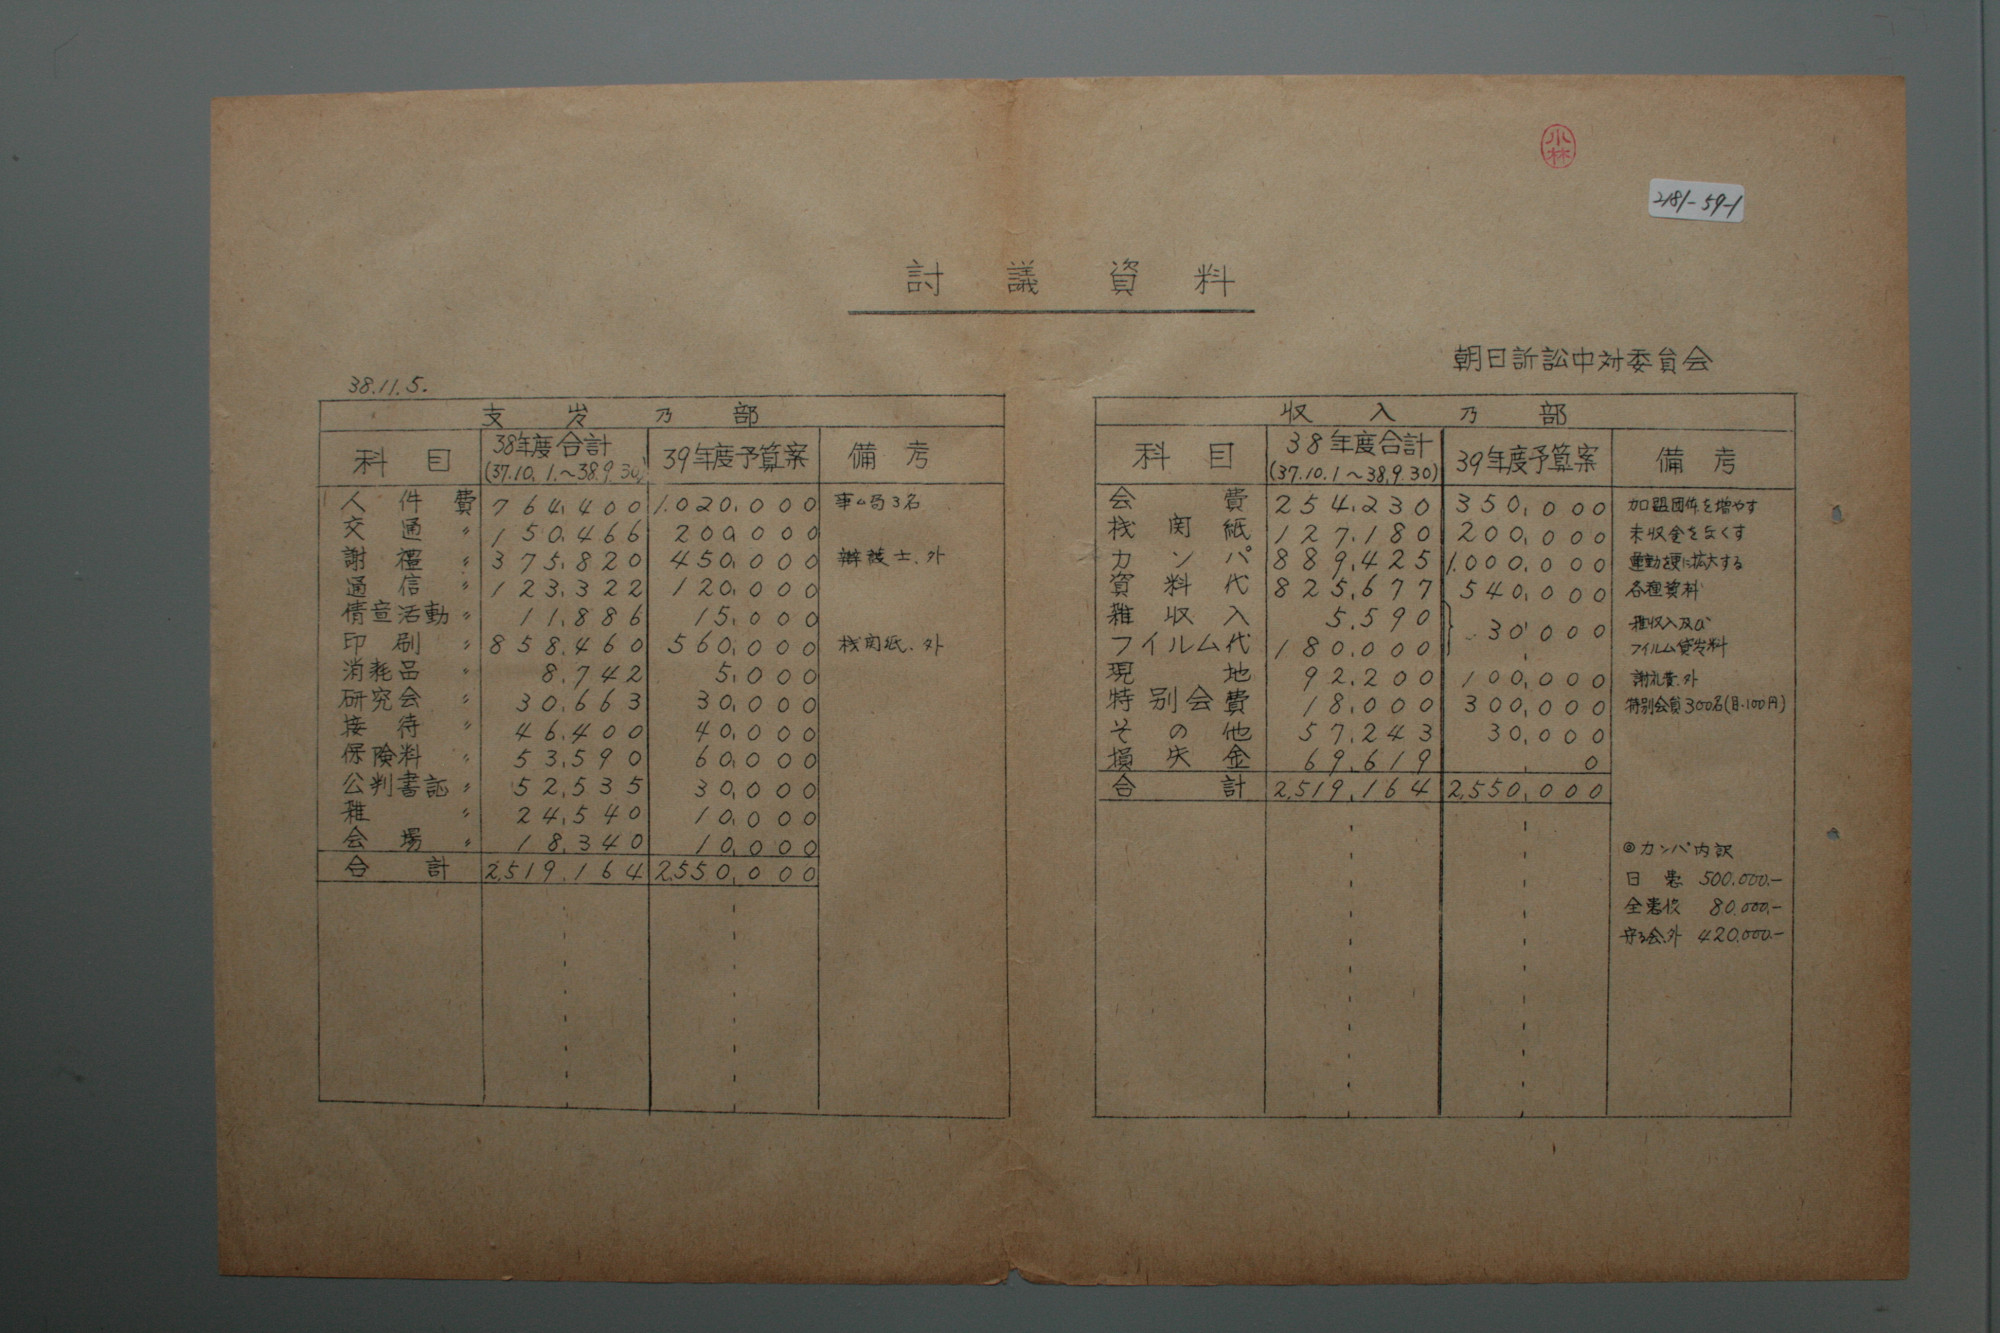 小林
2181-59-1
討議資料
朝日訴訟中対委員会
38.11.5.
支出乃部
科目 38年度合計 (37.10.1.～38.9.30) 39年度予算案 備考
人件費 764,400 1,020,000 事ム局3名
交通〃 150,466 200,000
謝礼〃 375,820 450,000 辯護士、外
通信〃 123,322 120,000
情宣活動〃 11,886 15,000
印刷〃 858,460 560,000 機関紙、外
消耗品〃 8,742 5,000
研究会〃 30,663 30,000
接待〃 46,400 40,000
保険料〃 53,590 60,000
公判書証〃 52,535 30,000
雑〃 24,540 10,000
会場〃 18,340 10,000
合計 2,519,164 2,550,000
収入乃部
科目 38年度合計 (37.10.1～38.9.30) 39年度予算案 備考
会費 254,230 350,000 加盟団体を増やす
機関紙 127,180 200,000 未収金をなくす
カンパ 889,425 1,000,000 運動を更に拡大する
資料代 825,677 540,000 各種資料
雑収入 5,590 } 30,000 雑収入及び
フイルム代 180,000 フイルム貸出料
現地 92,200 100,000 謝礼費、外
特別会費 18,000 300,000 特別会員300名(月.100円)
その他 57,243 30,000
損失金 69,619 0
合計 2,519,164 2,550,000
◎カンパ内訳
日患 500.000.-
全患協 80.000.-
守る会、外 420.000.-